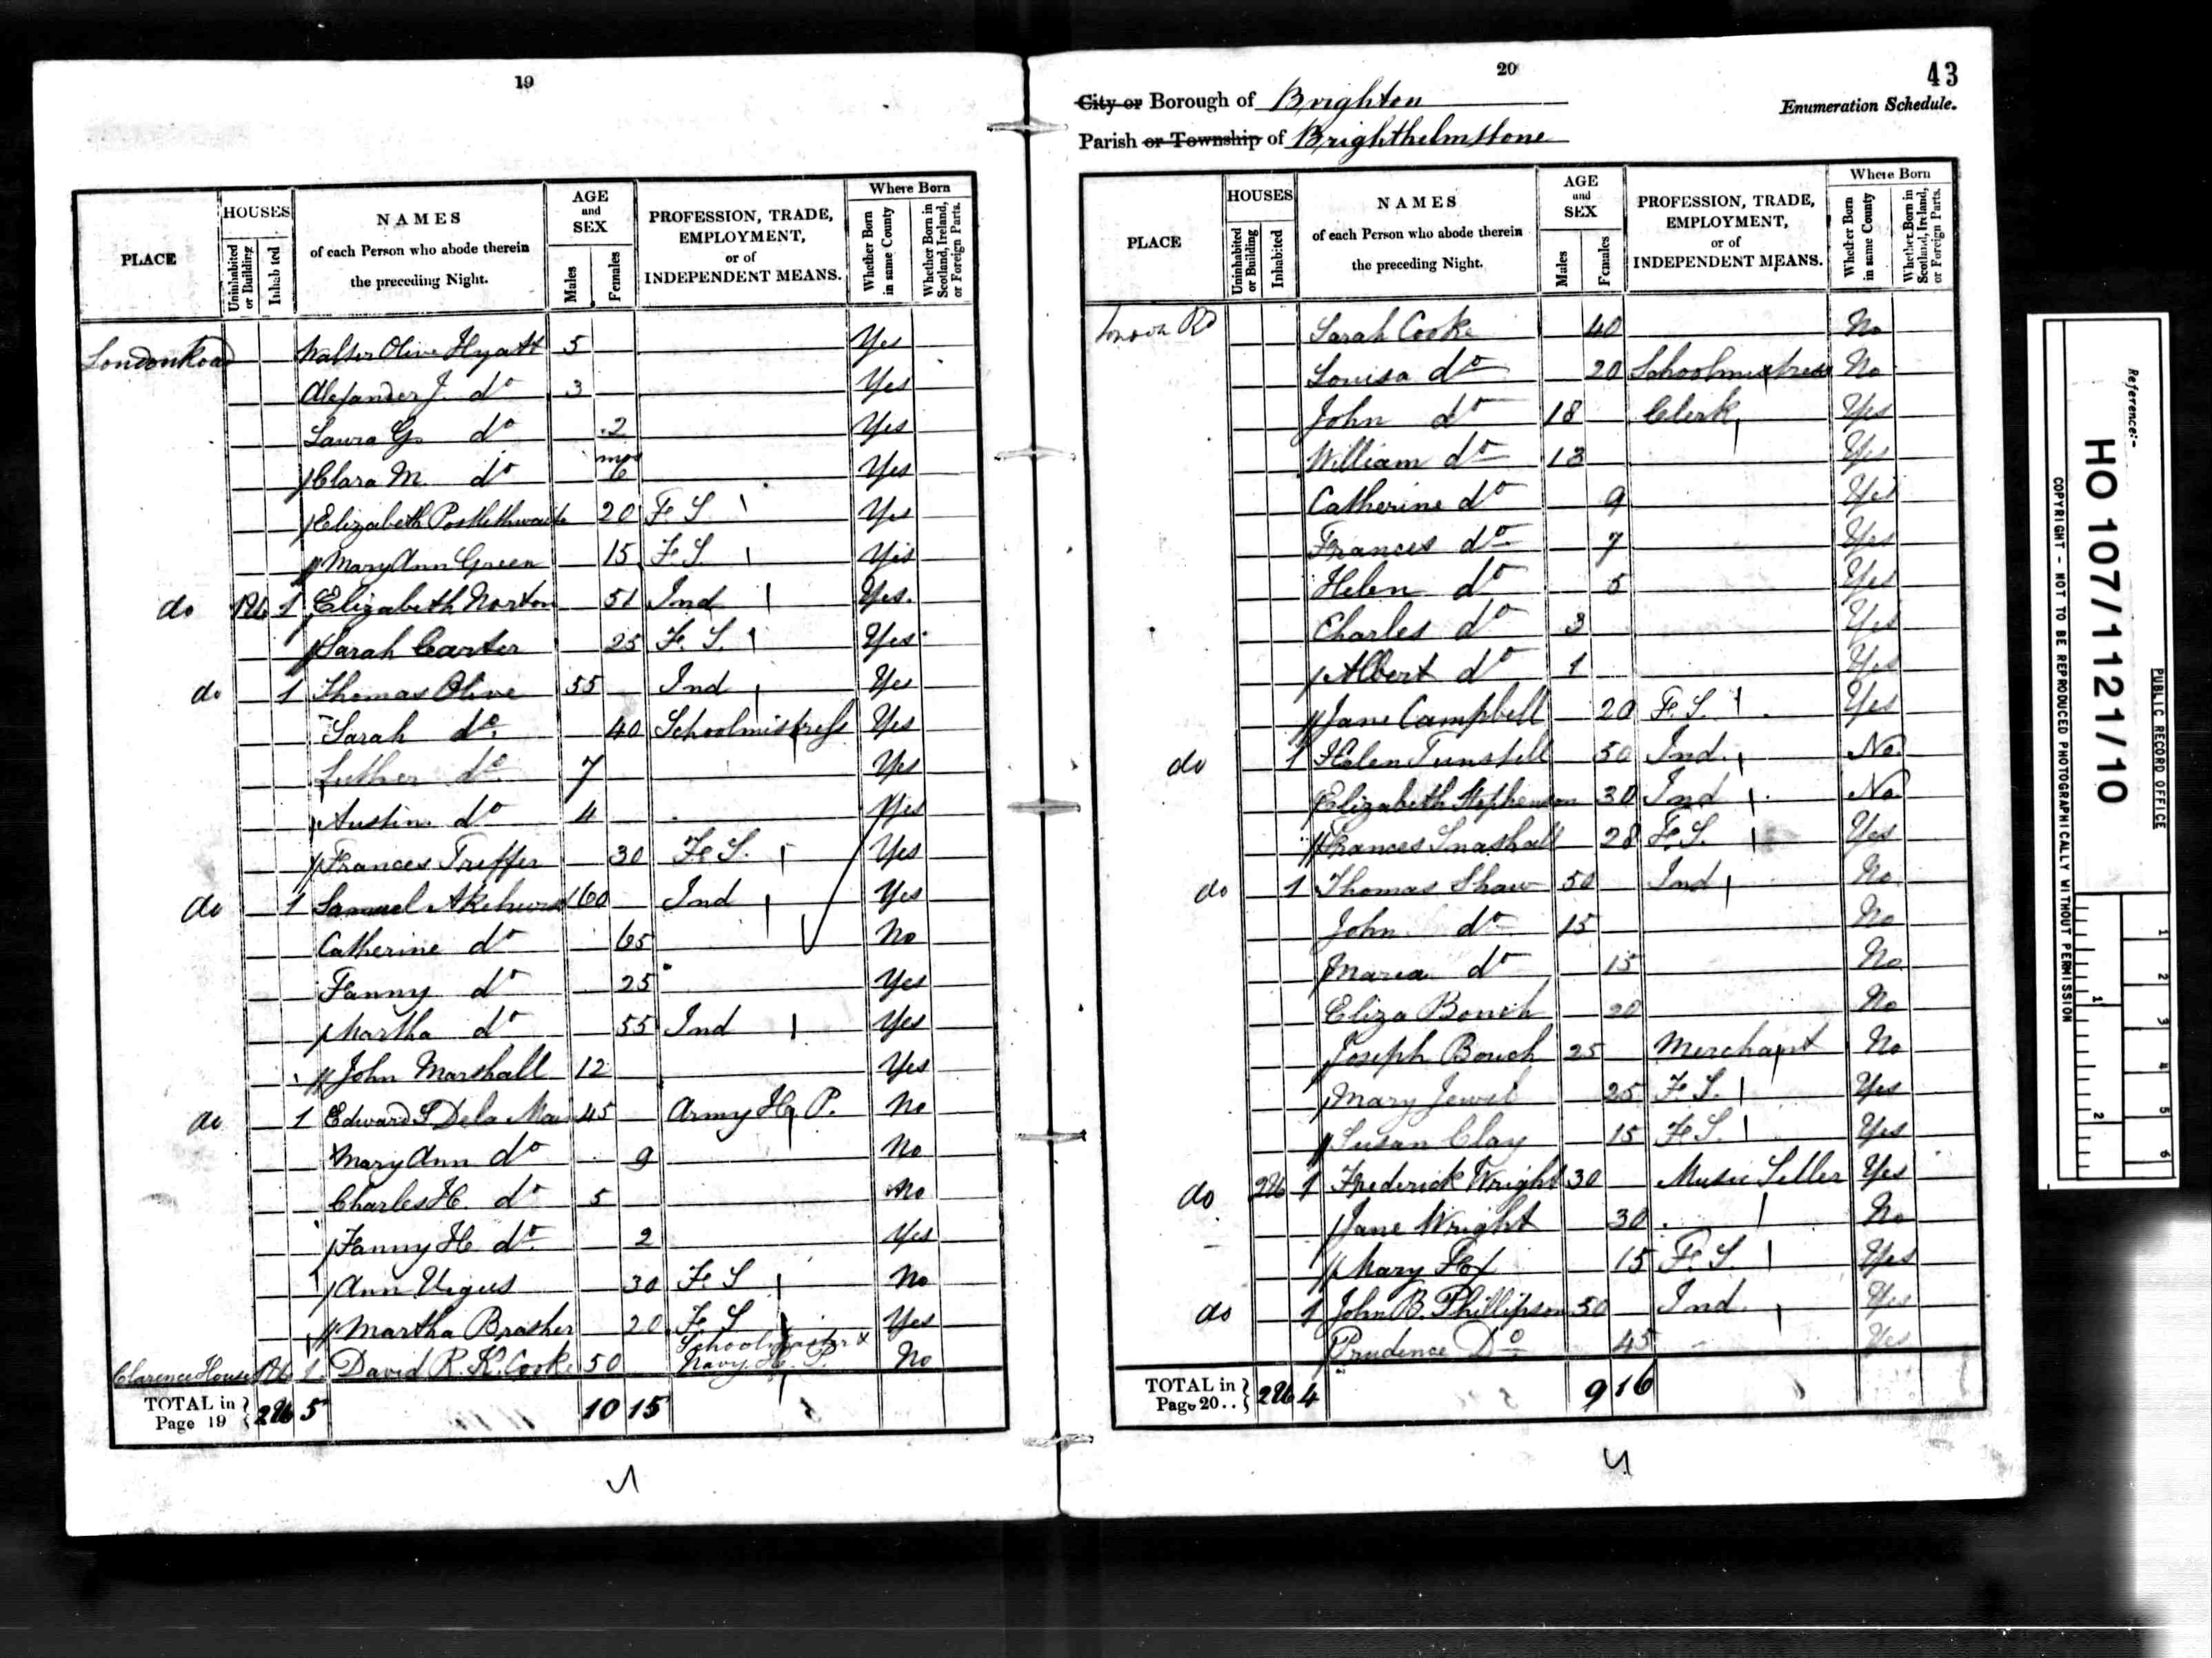 19
PLACE
HOUSES
Uninhabited or Building
Inhabited
NAMES
of each Person who abode therein
the preceding Night.
AGE
and
SEX
Males
Females
PROFESSION, TRADE,
EMPLOYMENT,
or of
INDEPENDENT MEANS.
Where Born
Whether Born in same County
Whether Born in Scotland, Ireland, or Foreign Parts.
London Road Walter Olive Hyatt 5 Yes
Alexander J. do 3 Yes
Laura G. do 2 Yes
Clara M. do mos 6 Yes
Elizabeth Postlethwaite 20 F. S. Yes
Mary Ann Green 15 F. S. Yes
do 1 U 1 Elizabeth Norton 51 Ind Yes.
Sarah Carter 25 F. S. Yes
do 1 Thomas Olive 55 Ind Yes
Sarah do 40 Schoolmistress Yes
Luther do 7 Yes
Austin do 4 Yes
Frances Treffer 30 F. S. Yes
do 1 Samuel Akehurst 60 Ind Yes
Catherine do 65 No
Fanny do 25 Yes
Martha do 55 Ind Yes
John Marshall 12 Yes
do 1 Edward S Dela Mai 45 Army H. P. No
Mary Ann do 9 No
Charles H. do 5 No
Fanny H. do 2 Yes
Ann Vigus 30 F. S No
Martha Brasher 20 F. S Yes
Clarence House 1 U 1 David R. K. Cooke 50 Schoolmaster x Navy H. P. No
TOTAL in Page 19 2 U 5 10 15
20
43
City or Borough of Brighton
Enumeration Schedule.
Parish or Township of Brighthelmstone
PLACE
HOUSES
Uninhabited or Building
Inhabited
NAMES
of each Person who abode therein
the preceding Night.
AGE
and
SEX
Males
Females
PROFESSION, TRADE,
EMPLOYMENT,
or of
INDEPENDENT MEANS.
Where Born
Whether Born in same County
Whether Born in Scotland, Ireland, or Foreign Parts.
London Rd Sarah Cooke 40 No
Louisa do 20 Schoolmistress No
John do 18 Clerk Yes
William do 13 Yes
Catherine do 9 Yes
Frances do 7 Yes
Helen do 5 Yes
Charles do 3 Yes
Albert do 1 Yes
Jane Campbell 20 F. S. Yes
do 1 Helen Tunstill 50 Ind. No
Elizabeth Stephenson 30 Ind No
Frances Snashall 28 F. S. Yes
do 1 Thomas Shaw 50 Ind No
John do 15 No
Maria do 15 No
Eliza Bouch 20 No
Joseph Bouch 25 Merchant No
Mary Jewel 25 F. S. Yes
Susan Clay 15 F. S. Yes
do 2 U 1 Frederick Wright 30 Music Seller Yes
Jane Wright 30 No
Mary 15 F. S. Yes
do 1 John B. Phillipson 50 Ind. Yes
Prudence Do 45 Yes
TOTAL in Page 20.. 2 U 4 9 16
Reference:-
HO 107/1121/10
PUBLIC RECORD OFFICE
COPYRIGHT - NOT TO BE REPRODUCED PHOTOGRAPHICALLY WITHOUT PERMISSION
1
2
1
2
3
4
5
6